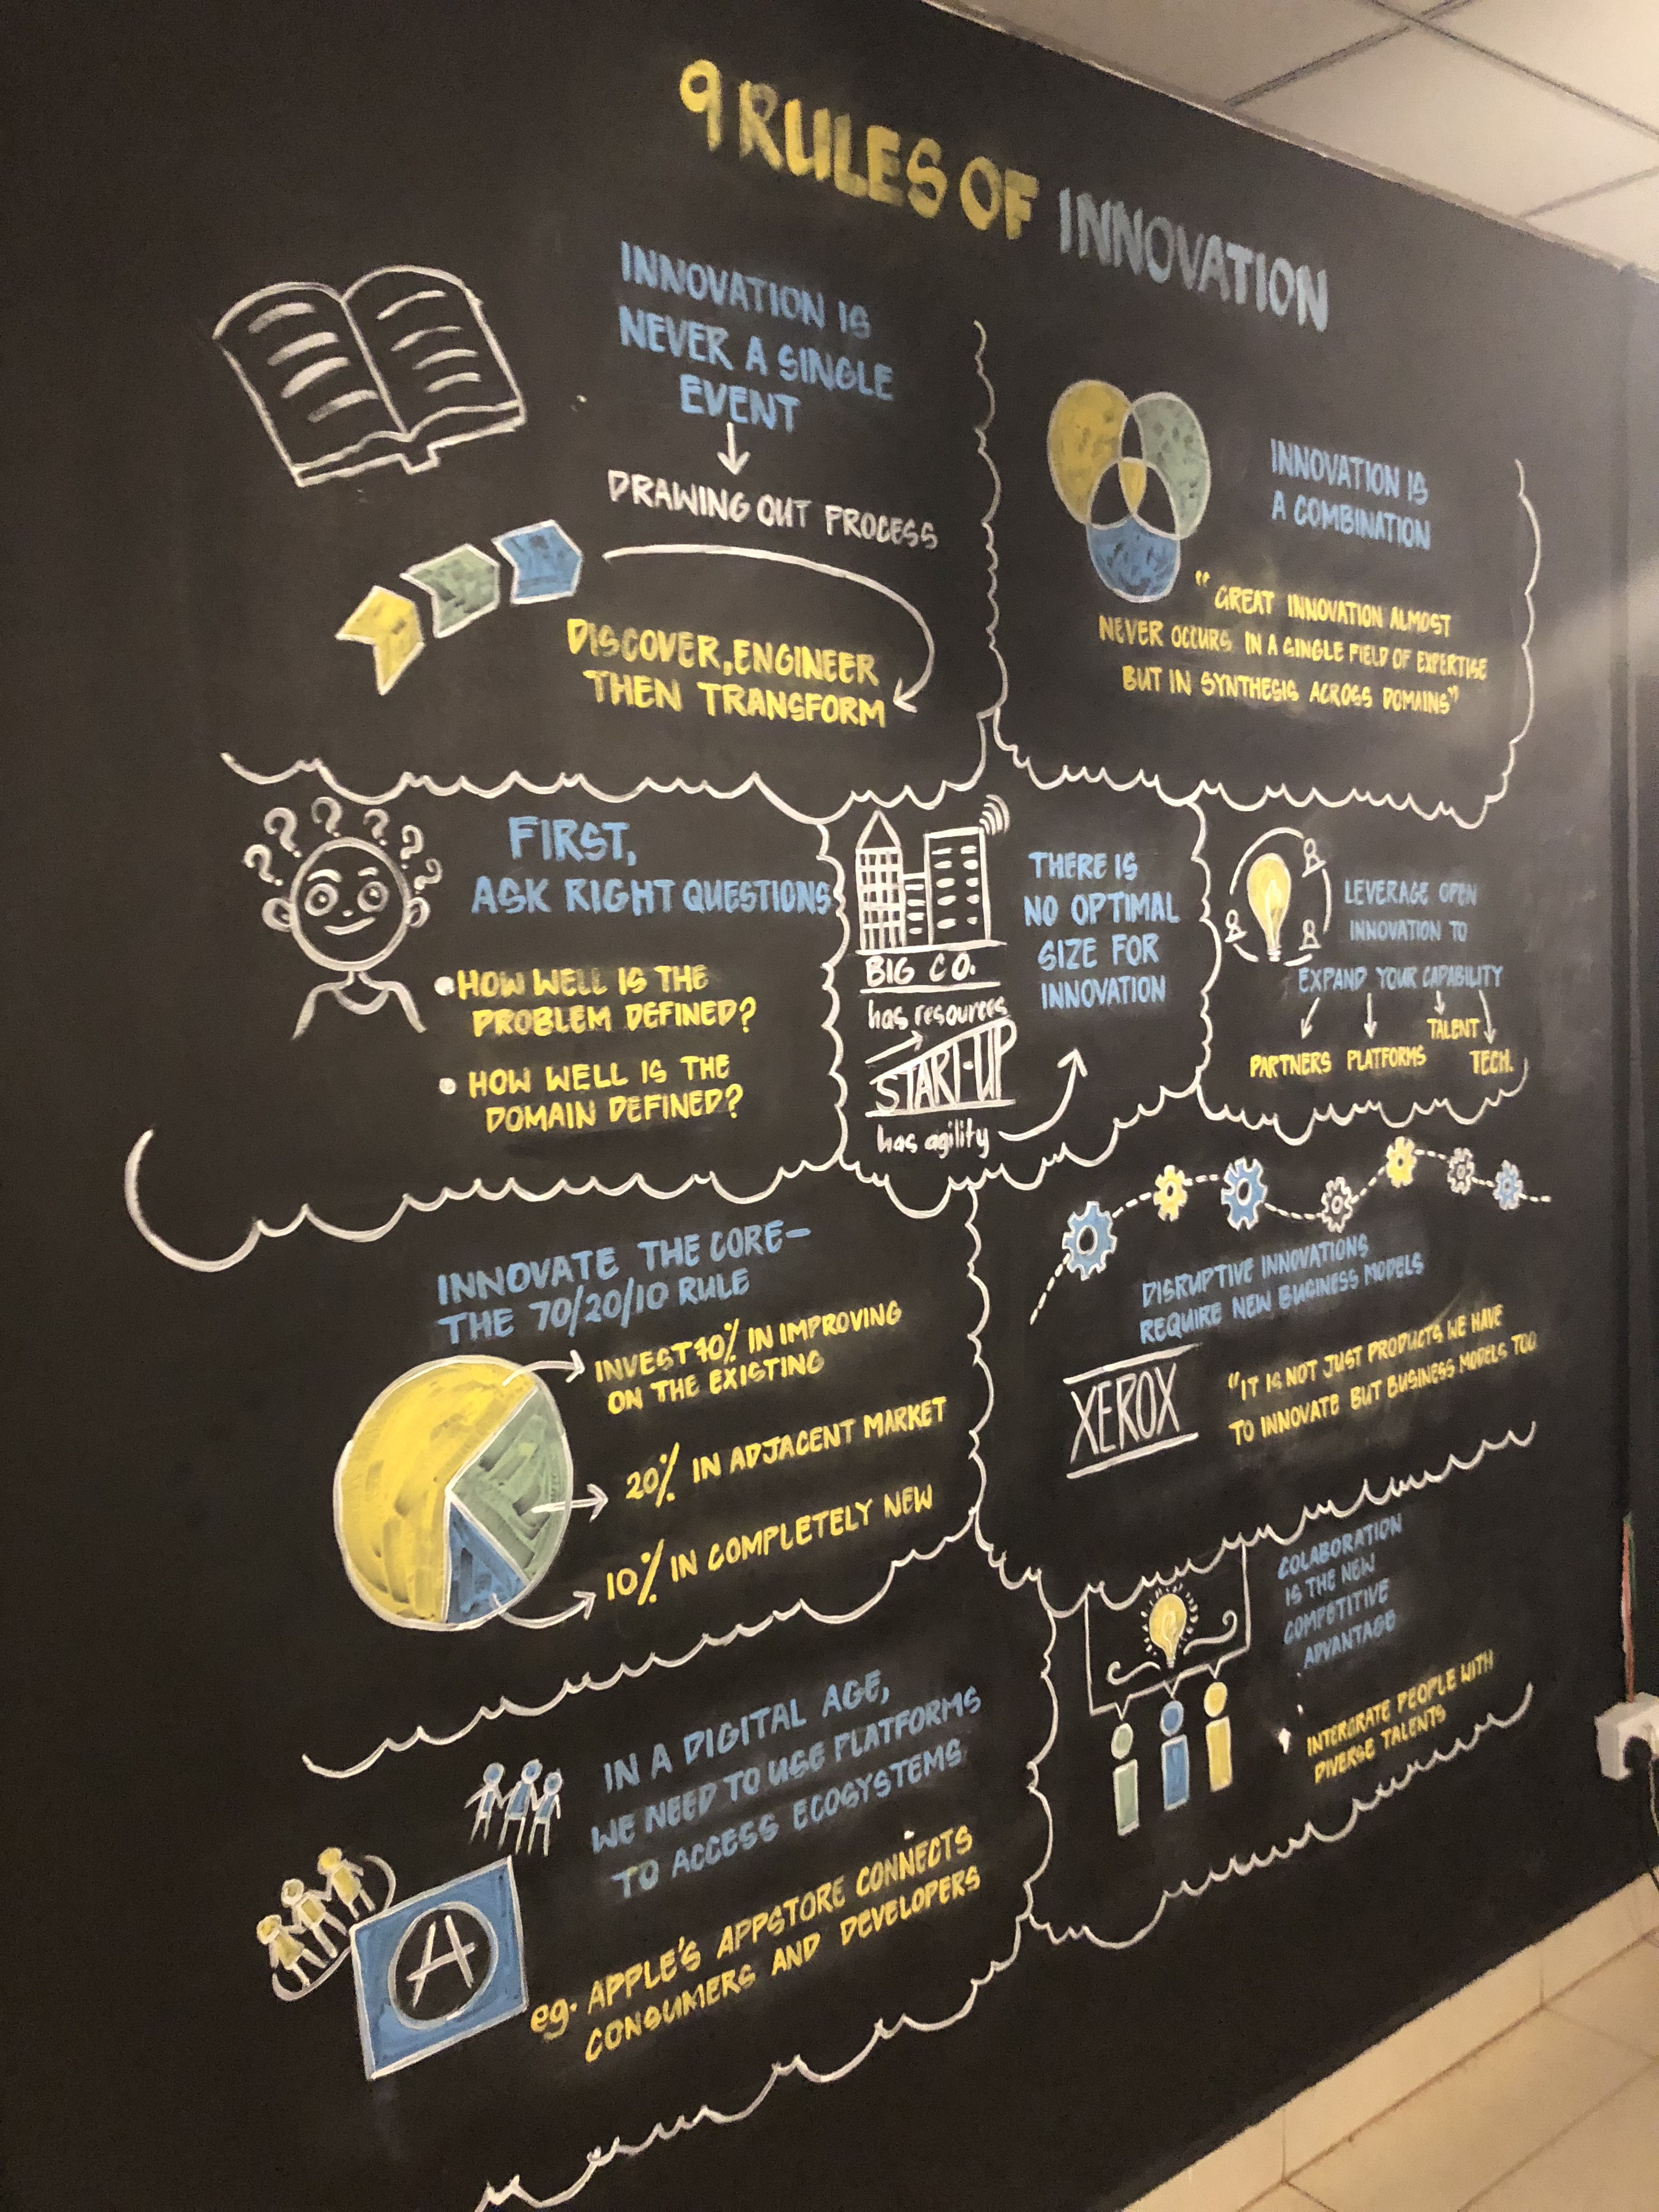 9 RULES OF INNOVATION
INNOVATION IS
NEVER A SINGLE
EVENT
DRAWING OUT PROCESS
DISCOVER, ENGINEER
THEN TRANSFORM
INNOVATION IS
A COMBINATION
"GREAT INNOVATION ALMOST
NEVER OCCURS IN A SINGLE FIELD OF EXPERTISE
BUT IN SYNTHESIS ACROSS DOMAINS"
FIRST,
ASK RIGHT QUESTIONS
• HOW WELL IS THE
PROBLEM DEFINED?
• HOW WELL IS THE
DOMAIN DEFINED?
BIG CO.
has resources
START-UP
has agility
THERE IS
NO OPTIMAL
SIZE FOR
INNOVATION
LEVERAGE OPEN
INNOVATION TO
EXPAND YOUR CAPABILITY
PARTNERS PLATFORMS TALENT TECH.
INNOVATE THE CORE—
THE 70/20/10 RULE
INVEST 70% IN IMPROVING
ON THE EXISTING
20% IN ADJACENT MARKET
10% IN COMPLETELY NEW
DISRUPTIVE INNOVATIONS
REQUIRE NEW BUSINESS MODELS
XEROX
"IT IS NOT JUST PRODUCTS WE HAVE
TO INNOVATE BUT BUSINESS MODELS TOO
IN A DIGITAL AGE,
WE NEED TO USE PLATFORMS
TO ACCESS ECOSYSTEMS
A
eg. APPLE'S APPSTORE CONNECTS
CONSUMERS AND DEVELOPERS
COLABORATION
IS THE NEW
COMPETITIVE
ADVANTAGE
INTERGRATE PEOPLE WITH
DIVERSE TALENTS